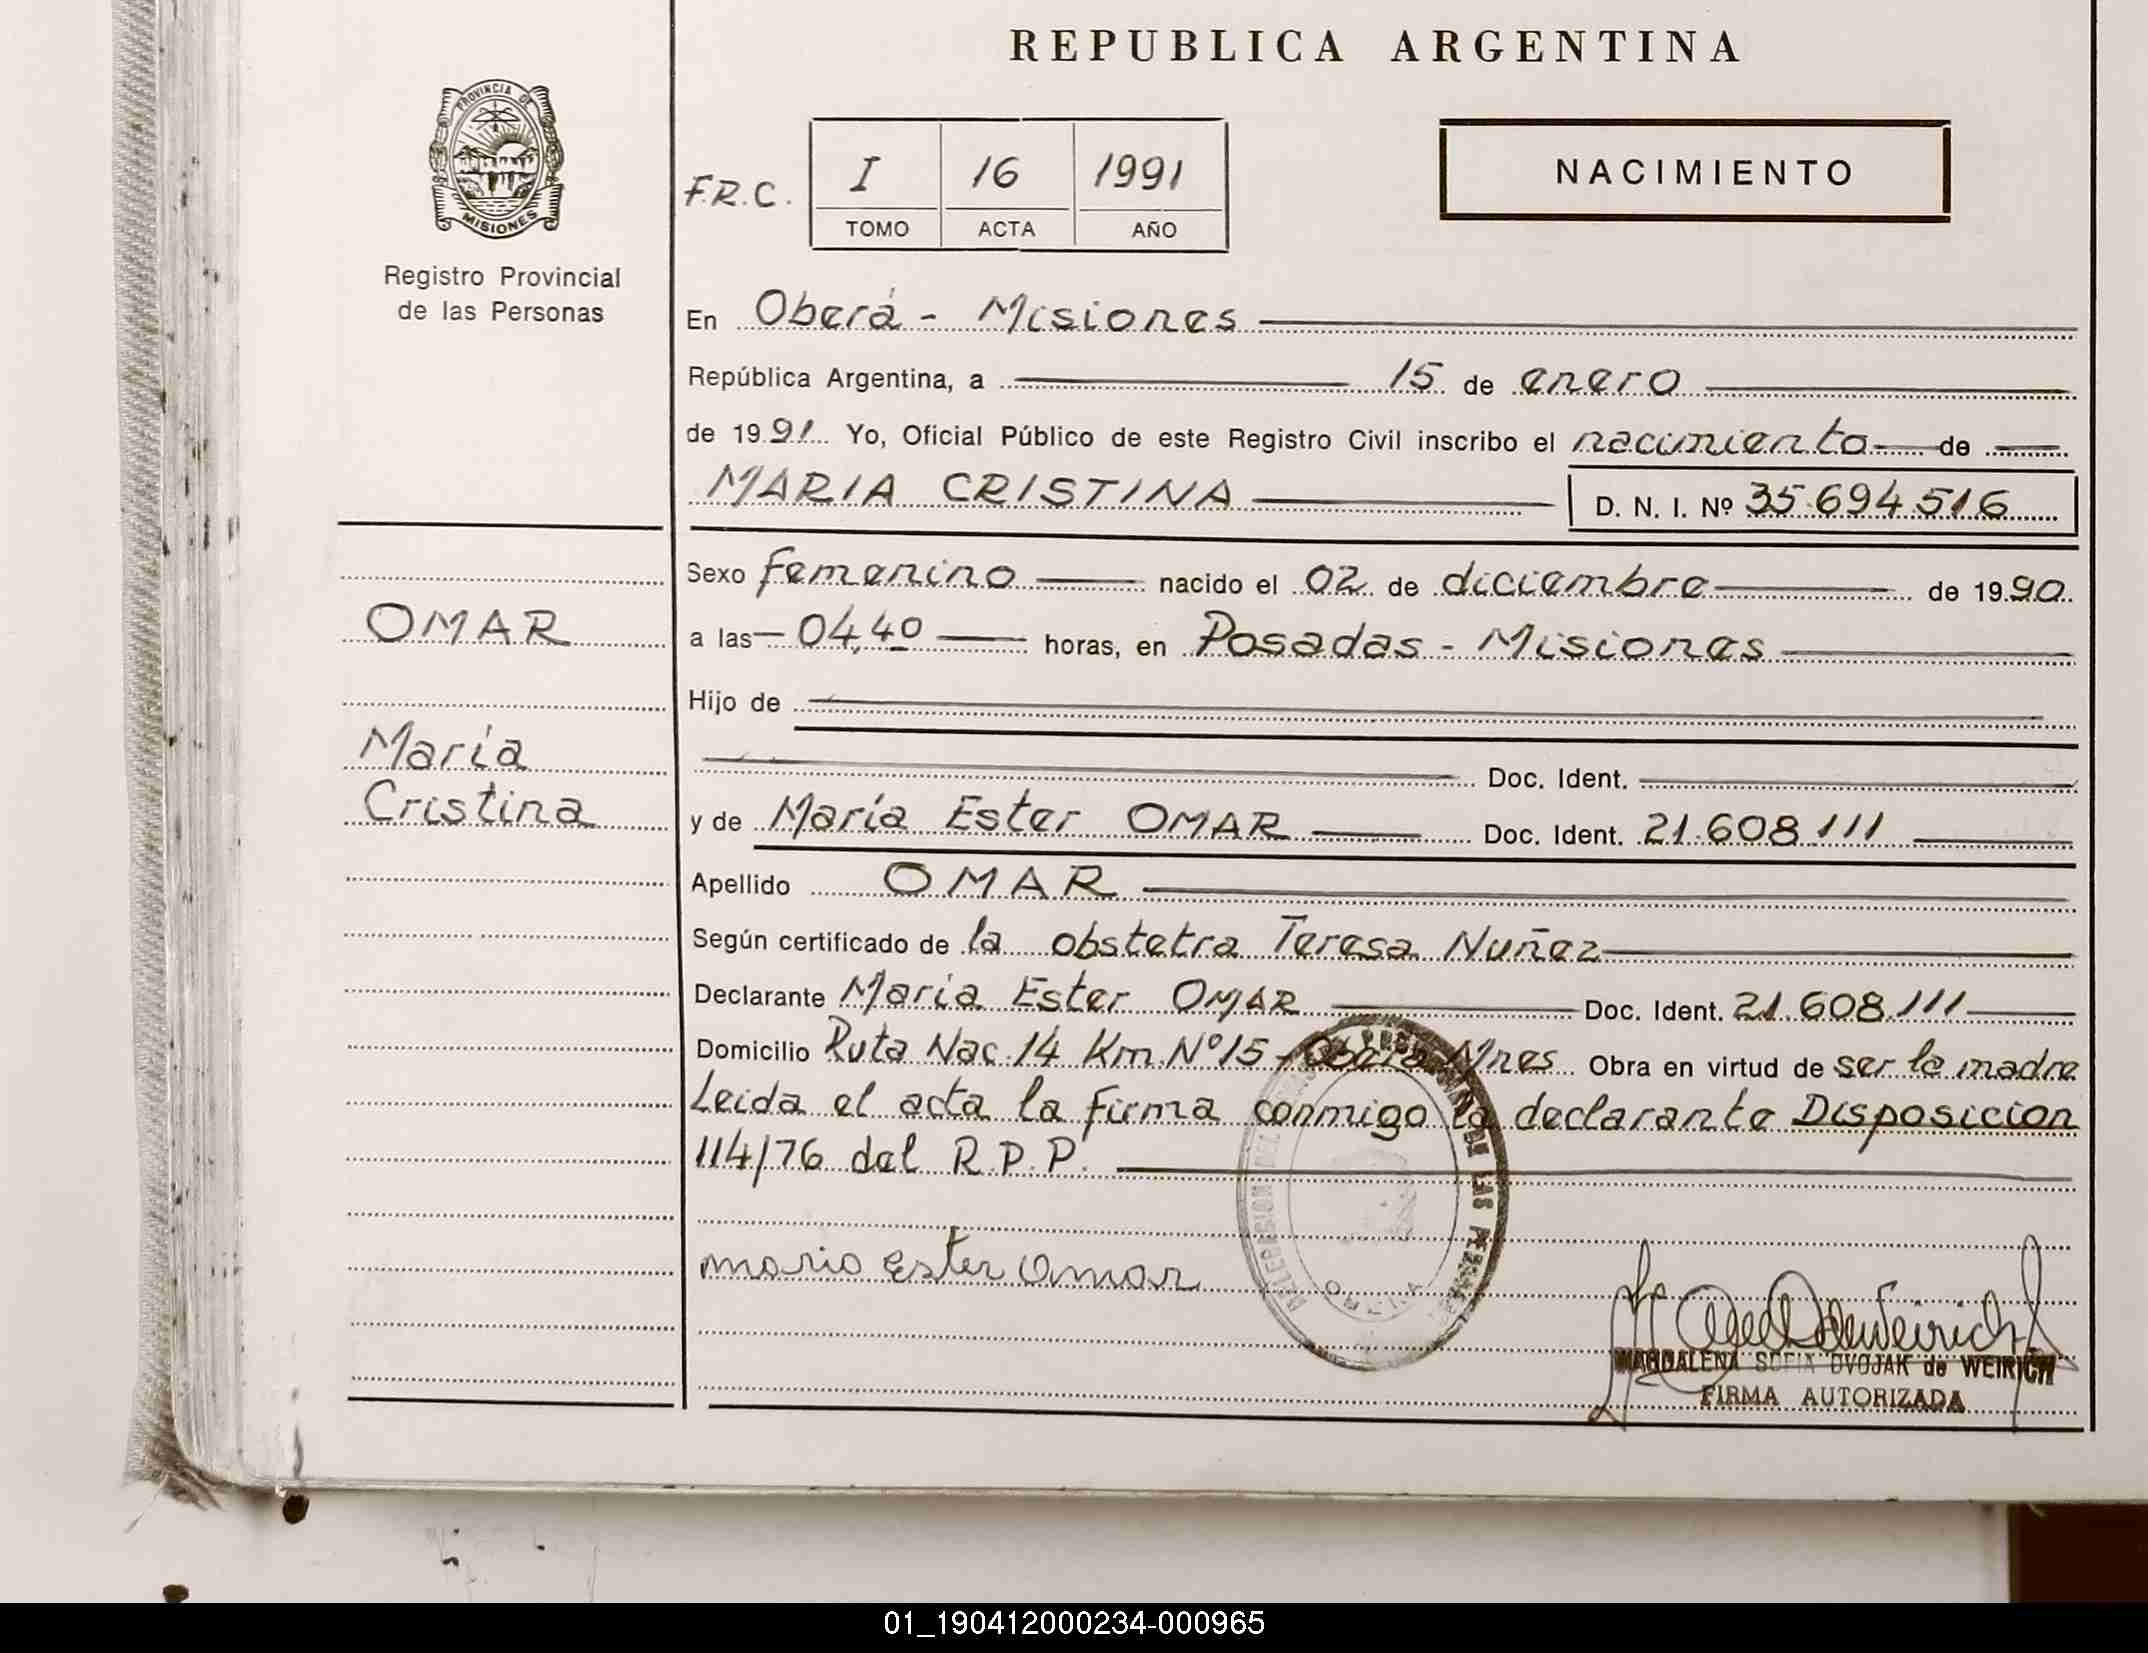 REPUBLICA ARGENTINA
PROVINCIA DE
MISIONES
Registro Provincial
de las Personas
F.R.C. I 16 1991
TOMO ACTA AÑO
NACIMIENTO
En Oberá - Misiones
República Argentina, a 15 de enero
de 1991 Yo, Oficial Público de este Registro Civil inscribo el nacimiento de
MARIA CRISTINA D. N. I. Nº 35.694.516
Sexo femenino nacido el 02 de diciembre de 1990
OMAR
a las 04,40 horas, en Posadas - Misiones
Hijo de
María
Cristina
Doc. Ident.
y de María Ester OMAR Doc. Ident. 21.608.111
Apellido OMAR
Según certificado de la obstetra Teresa Nuñez
Declarante María Ester OMAR Doc. Ident. 21.608.111
Domicilio Ruta Nac. 14 Km Nº 15 - Oberá Mnes Obra en virtud de ser la madre
Leida el acta la firma conmigo la declarante Disposicion
114/76 del R.P.P.
maria Ester Omar
MAGDALENA SOFIA DVOJAK de WEIRICH
FIRMA AUTORIZADA
01_190412000234-000965